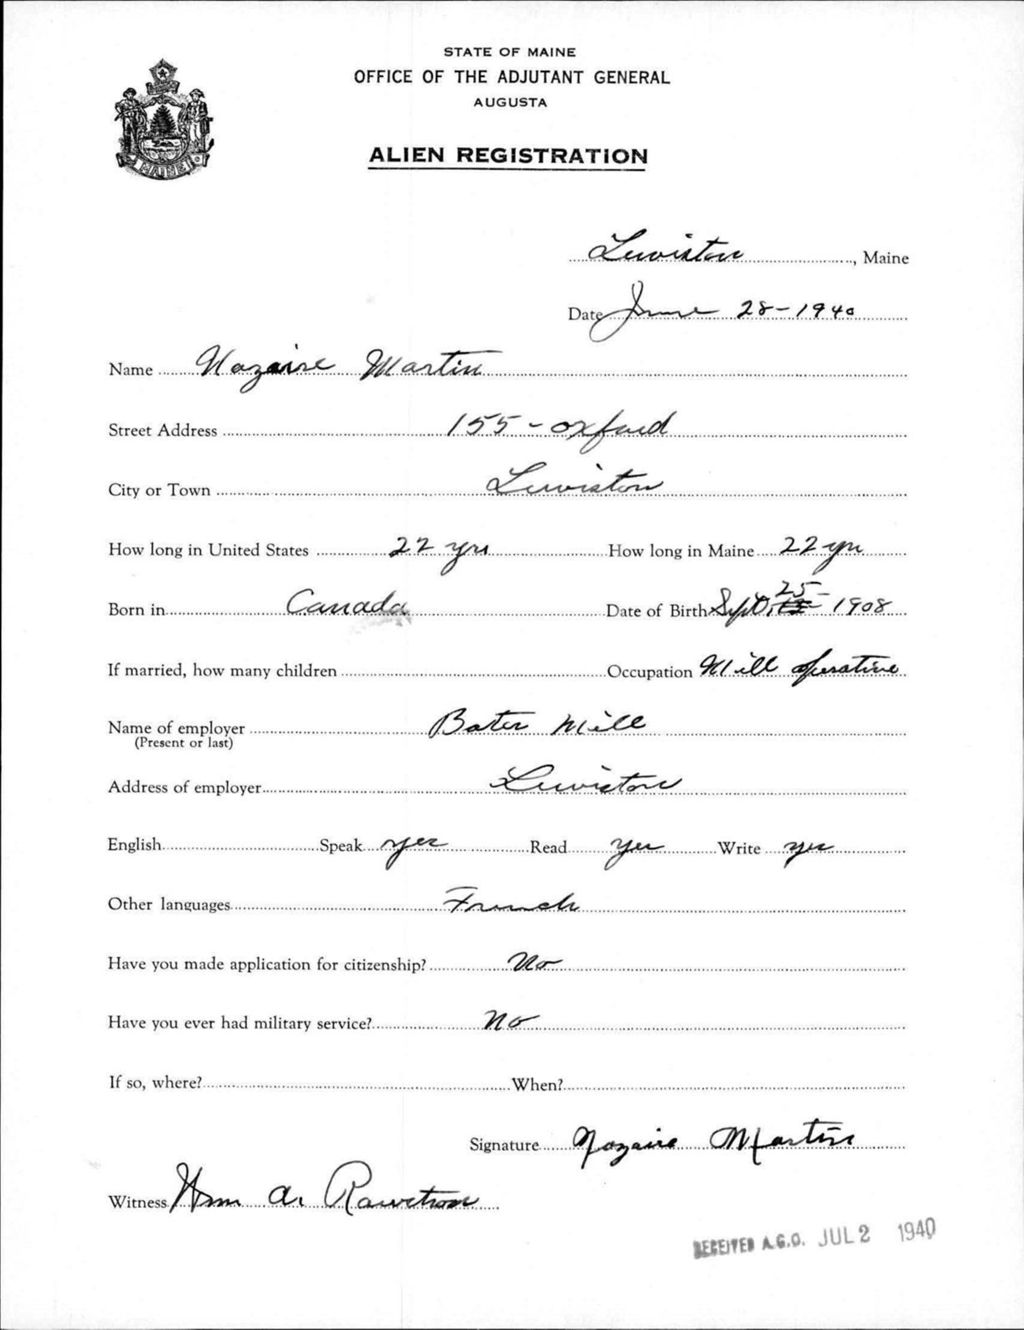 STATE OF MAINE
OFFICE OF THE ADJUTANT GENERAL
AUGUSTA
ALIEN REGISTRATION
MAINE
Lewiston, Maine
Date June 28-1940
Name Nazaire Martin
Street Address 155 - Oxford
City or Town Lewiston
How long in United States 22 yrs How long in Maine 22 yrs
Born in Canada Date of Birth Sept. 25- 1908
If married, how many children Occupation Mill operative
Name of employer Bates Mill
(Present or last)
Address of employer Lewiston
English Speak yes Read yes Write yes
Other languages French
Have you made application for citizenship? No
Have you ever had military service? No
If so, where? When?
Signature Nazaire Martin
Witness Wm A. Rawstron
RECEIVED A.G.O. JUL 2 1940